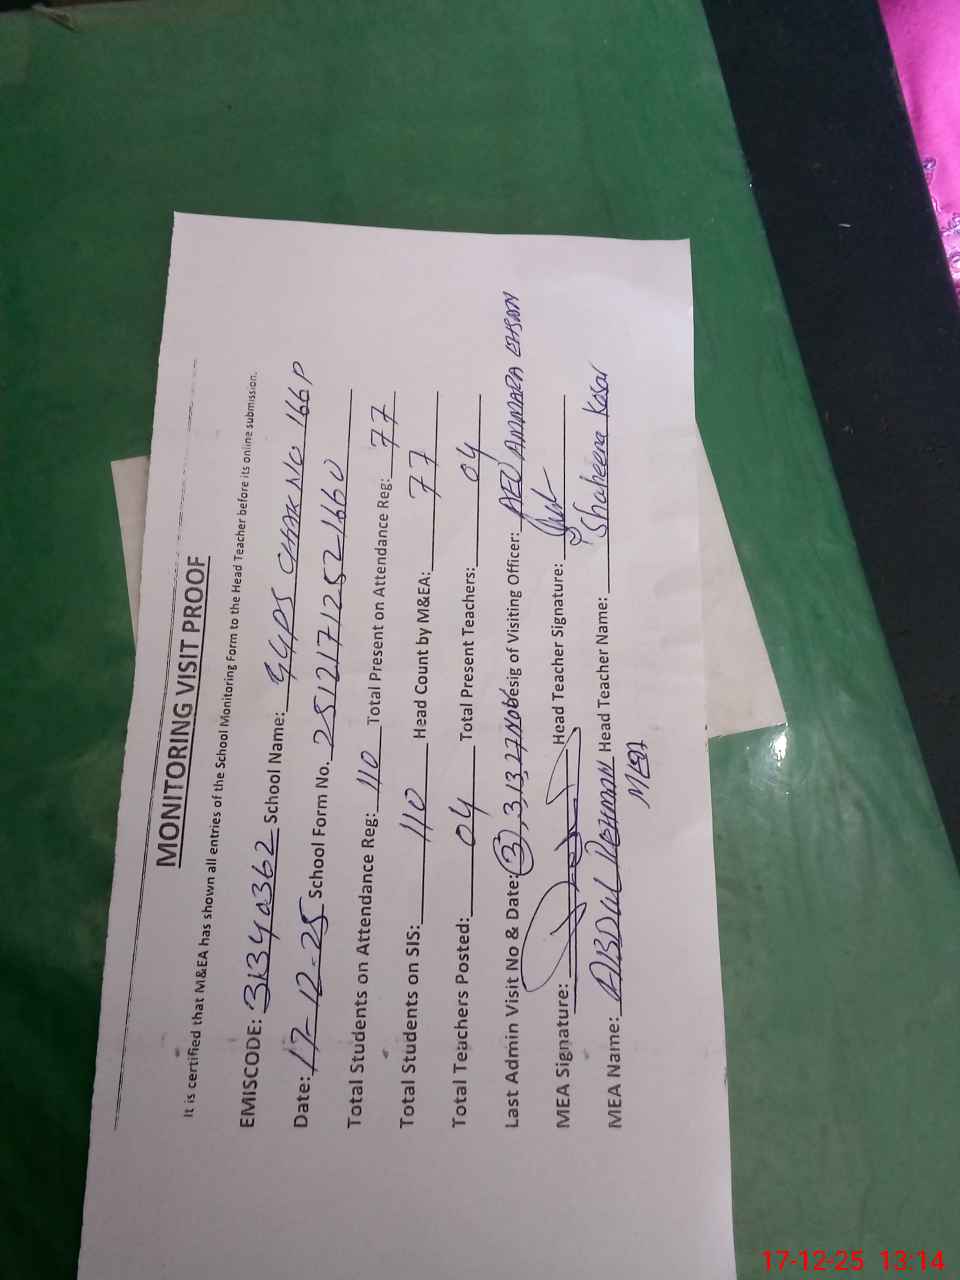 MONITORING VISIT PROOF
It is certified that M&EA has shown all entries of the School Monitoring Form to the Head Teacher before its online submission.
EMISCODE: 31340362 School Name: GGPS CHAK NO 166P
Date: 17-12-25 School Form No. 2512171252166U
Total Students on Attendance Reg: 110 Total Present on Attendance Reg: 77
Total Students on SIS: 110 Head Count by M&EA: 77
Total Teachers Posted: 04 Total Present Teachers: 04
Last Admin Visit No & Date: 3, 3,13,27 Nov Desig of Visiting Officer: AEO AMMARA EHSAN
MEA Signature: Head Teacher Signature:
MEA Name: ABDUL REHMAN Head Teacher Name: Shaheena Kosar
MEA
17-12-25 13:14